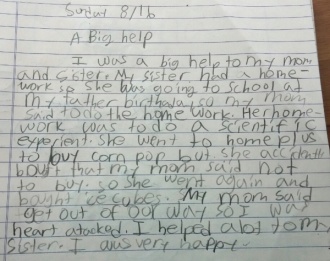 Sunday 8/16
A Big help
I was a big help to my mom
and sister. My sister had a home-
work so she was going to school at
my father birthday so my mom
said to do the home work. Her home-
work was to do a scientific
experient. She went to home plus
to buy corn pop but she accidently
bought that my mom said not
to buy. so she went again and
bought ice cubes. My mom said
get out of our way so I was
heart atacked. I helped alot to my
sister. I was very happy.